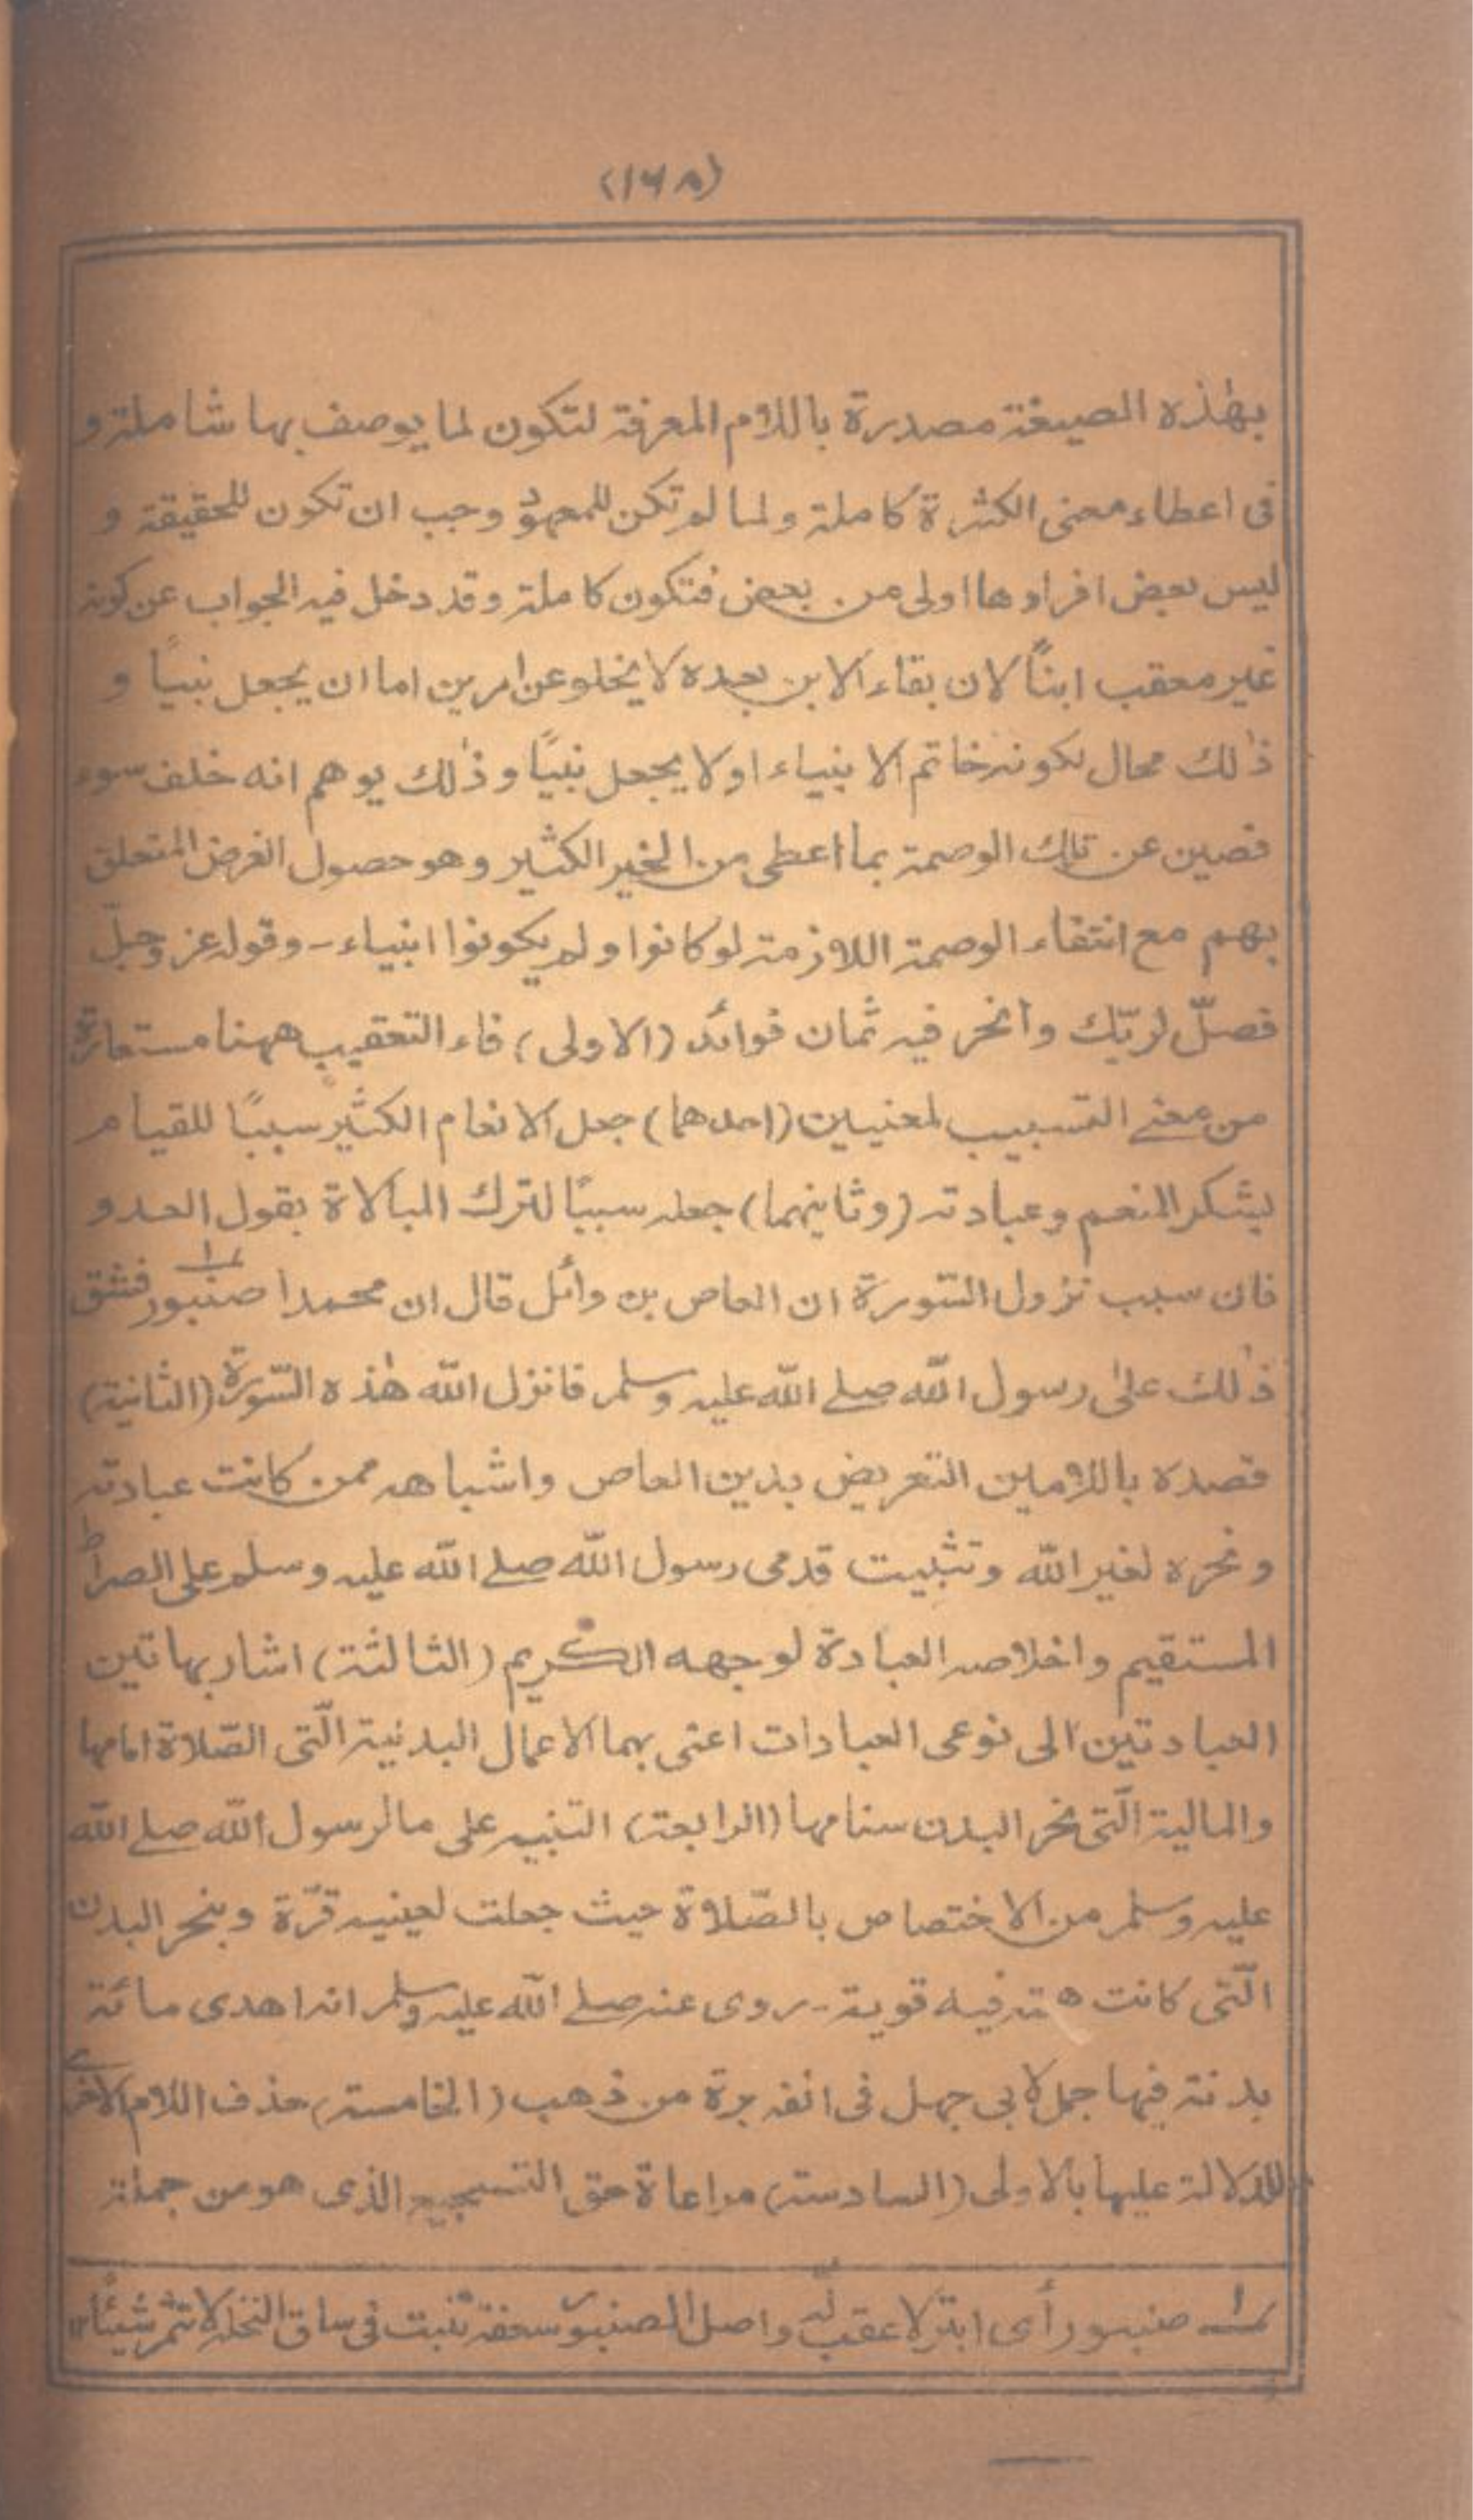 (١٦٨)
بهٰذه الصيغة مصدرة باللام المعرفة لتكون لما يوصف بها شاملة و
فى اعطاء معنى الكثرة كاملة ولما لم تكن للمعهود وجب ان تكون للحقيقة و
ليس بعض افرادها اولى من بعض فتكون كاملة وقد دخل فيه الجواب عن كونه
غير معقب ابنًا لان بقاء الابن بعده لا يخلو عن امرين اما ان يجعل نبيًا و
ذٰلك محال لكونه خاتم الانبياء اولا يجعل نبيًا وذٰلك يوهم انه خلف سوء
فصين عن تلك الوصمة بما اعطى من الخير الكثير وهو حصول الغرض المتعلق
بهم مع انتفاء الوصمة اللازمة لو كانوا ولم يكونوا انبياء - وقوله عز وجلّ
فصلّ لربّك وانحر فيه ثمان فوائد (الاولى) فاء التعقيب ههنا مستعارة
من معنے التسبيب لمعنيين (احدهما) جعل الانعام الكثير سببًا للقيام
بشكر المنعم وعبادته (وثانيهما) جعله سببًا لترك المبالاة بقول العدو
فان سبب نزول السّورة ان العاص بن وائل قال ان محمدا صنبور ؁١ فشق
ذٰلك علىٰ رسول اللّٰه صلے اللّٰه عليه وسلم فانزل اللّٰه هٰذه السّورة (الثانية)
قصده باللامين التعريض بدين العاص واشباهه ممن كانت عبادته
ونحره لغير اللّٰه وتثبيت قدمى رسول اللّٰه صلے اللّٰه عليه وسلم على الصراط
المستقيم واخلاصه العبادة لوجهه الكريم (الثالثة) اشار بهاتين
العبادتين الى نوعى العبادات اعنى بهما الاعمال البدنية الّتى الصّلاة امامها
والمالية الّتى نحر البدن سنامها (الرابعة) التنبيه على ما لرسول اللّٰه صلے اللّٰه
عليه وسلم من الاختصاص بالصّلاة حيث جعلت لعينيه قرّة وبنحر البدن
الّتى كانت همته فيه قوية - روى عنه صلے اللّٰه عليه وسلم انه اهدى مائة
بدنة فيها جمل لابى جهل فى انفه برة من ذهب (الخامسة) حذف اللام الاخرے
للدلالة عليها بالاولى (السادسة) مراعاة حق التسجيع الذى هو من جملة
؁١ صنبور أى ابتر لا عقب له واصل الصنبور سعفة تنبت فى ساق النخلة لا تثمر شيئًا ١٢